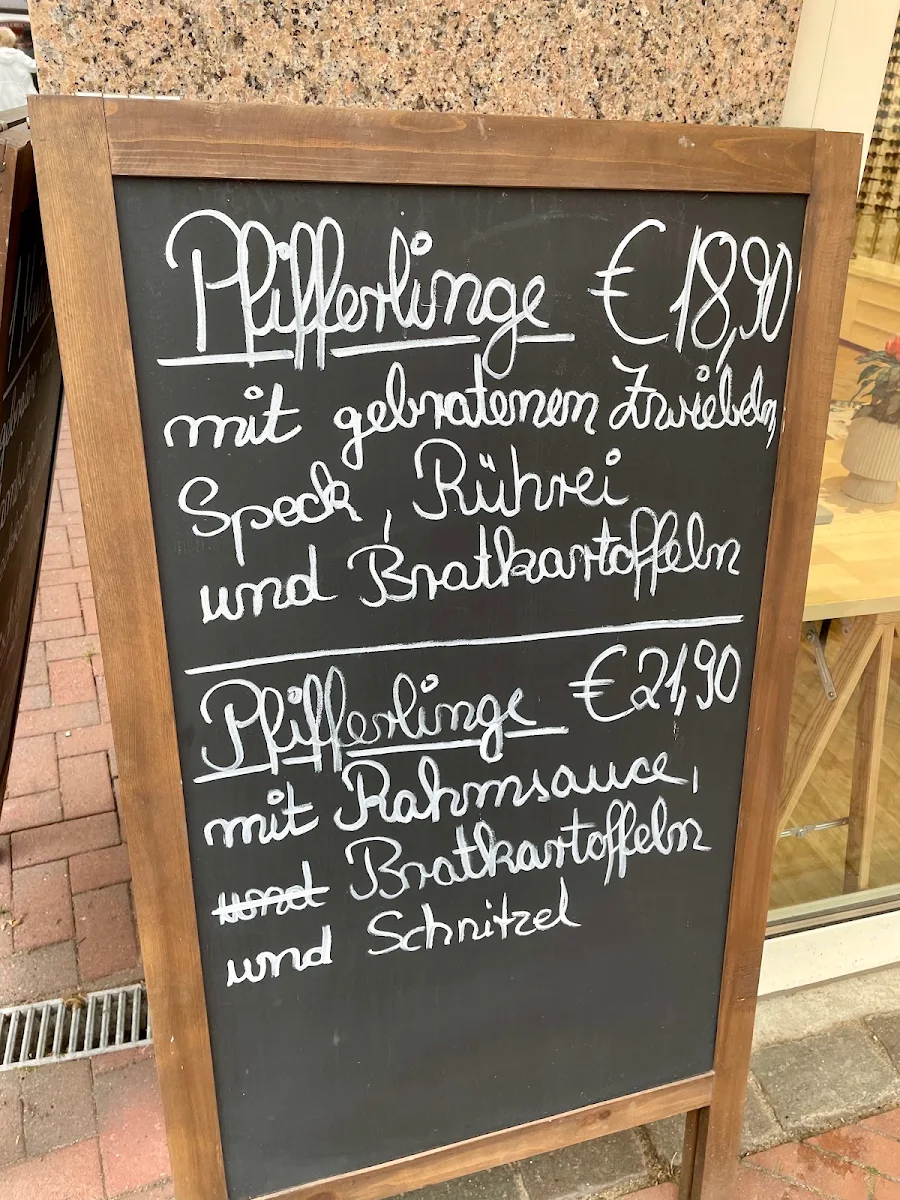 Pfifferlinge €18,90
mit gebratenen Zwiebeln,
Speck, Rührei
und Bratkartoffeln
Pfifferlinge €21,90
mit Rahmsauce,
und Bratkartoffeln
und Schnitzel